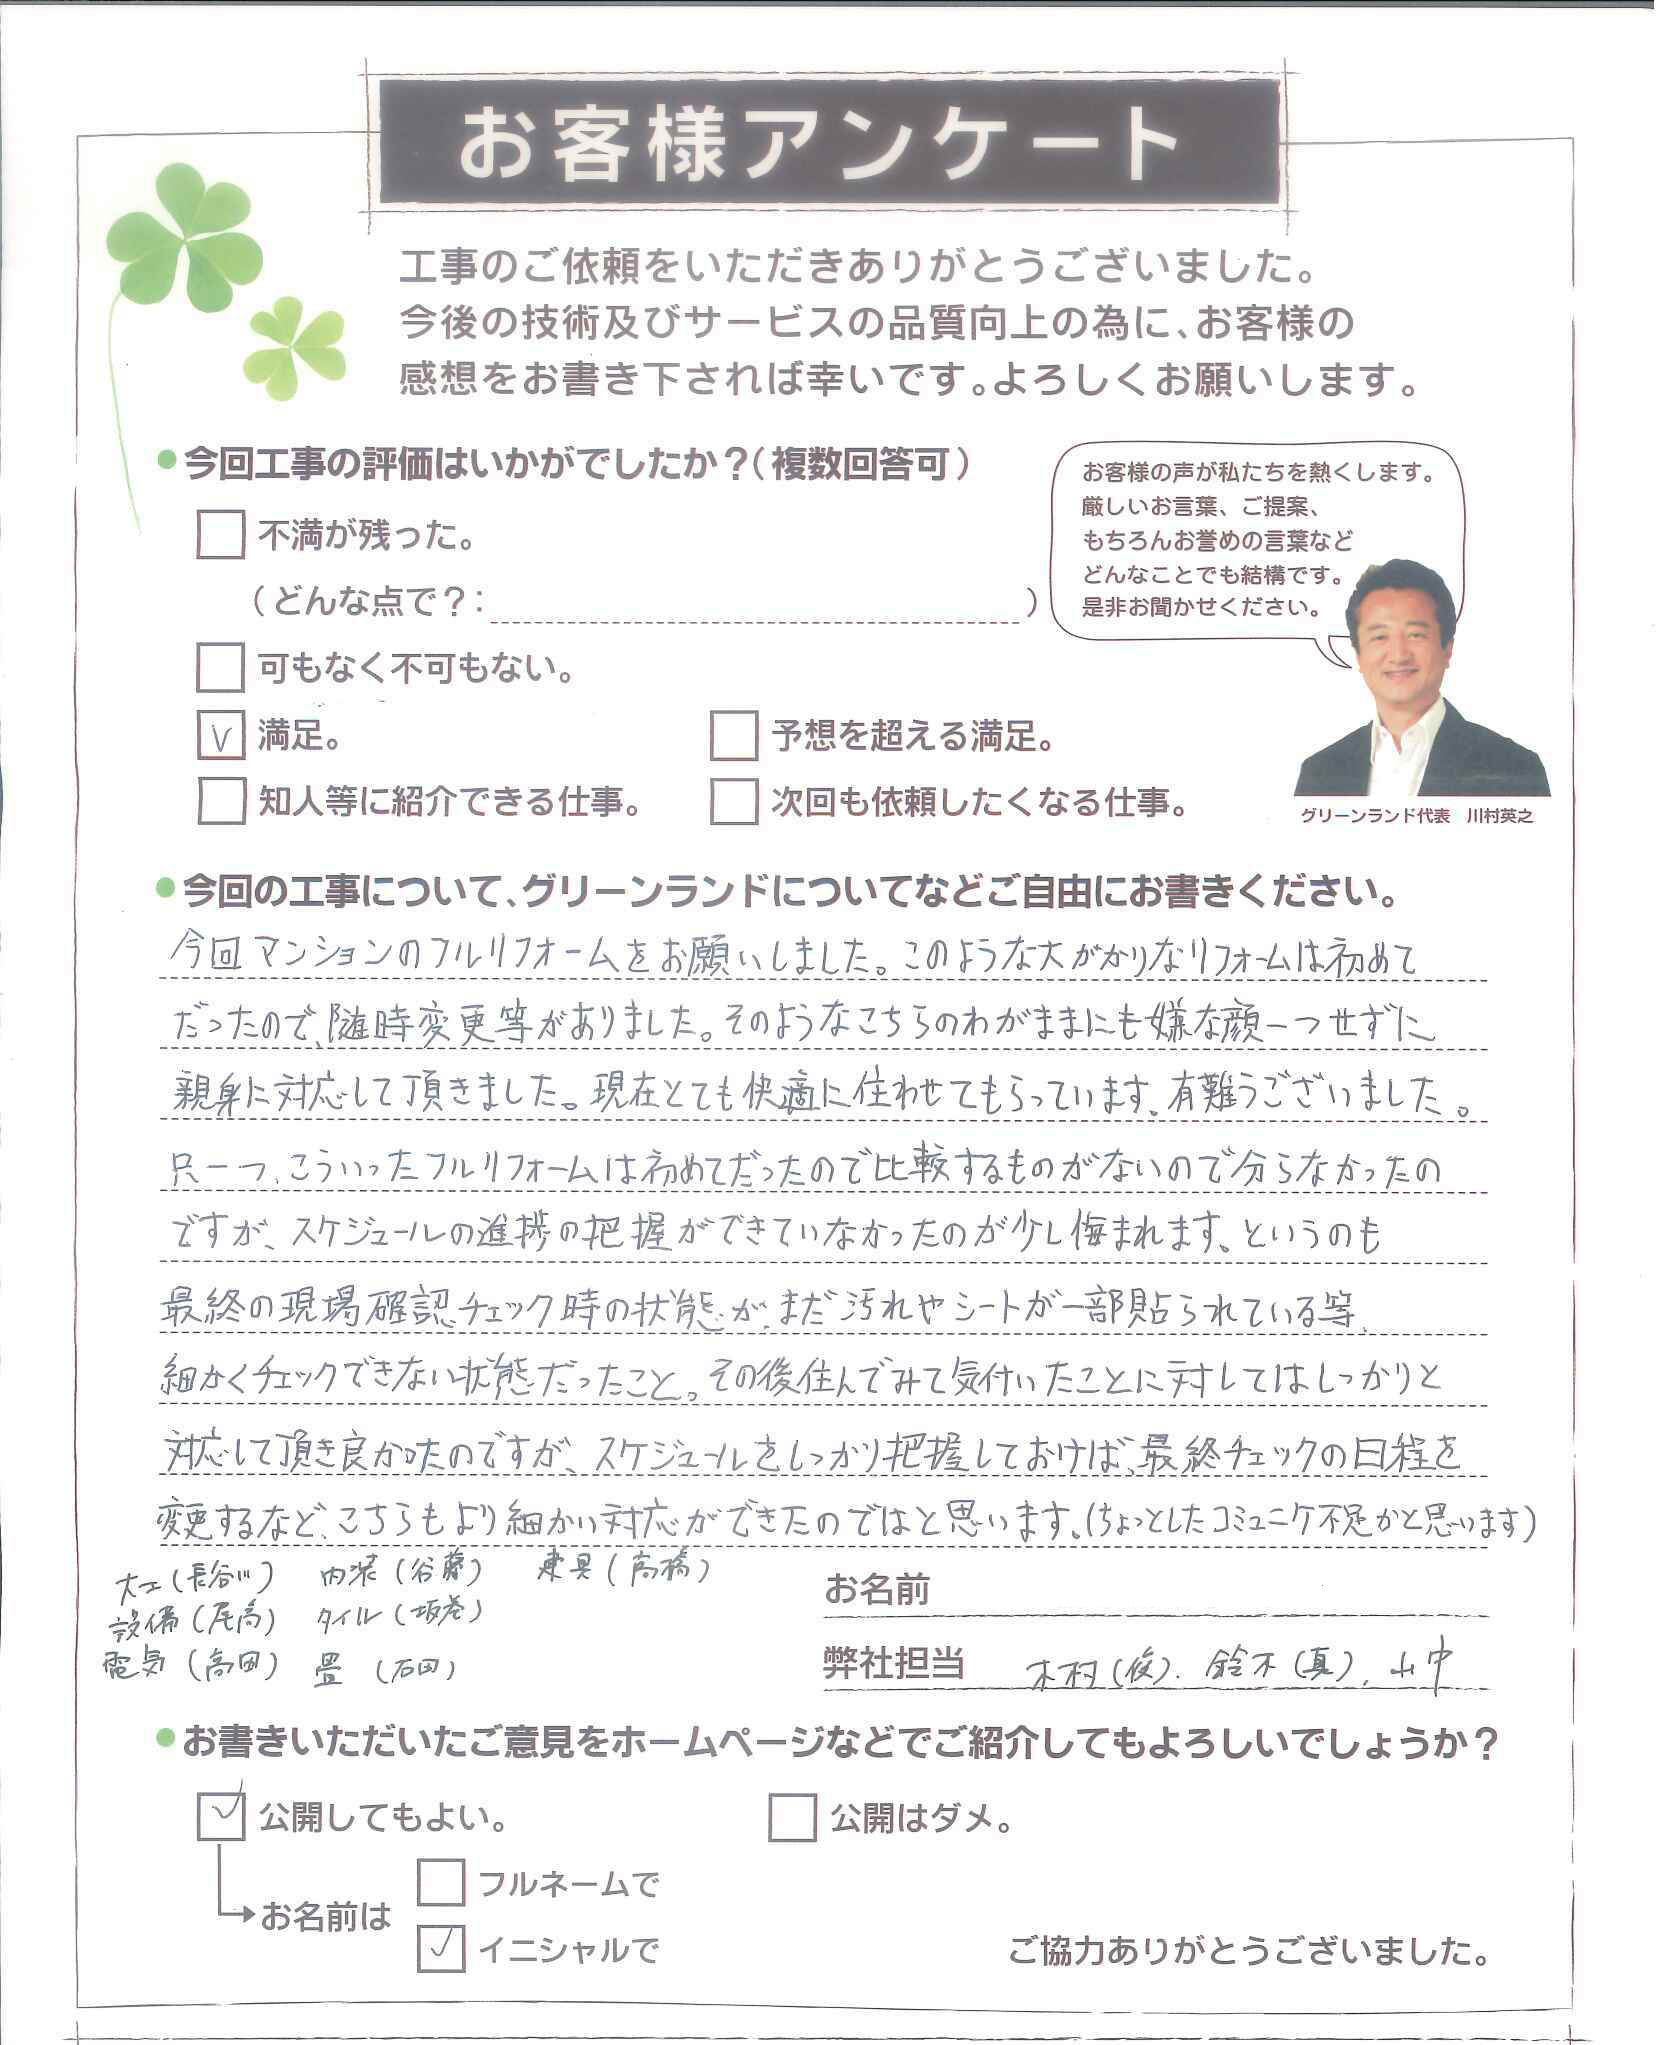 お客様アンケート
工事のご依頼をいただきありがとうございました。
今後の技術及びサービスの品質向上の為に、お客様の
感想をお書き下されば幸いです。よろしくお願いします。
今回工事の評価はいかがでしたか？（複数回答可）
お客様の声が私たちを熱くします。
厳しいお言葉、ご提案、
もちろんお誉めの言葉など
どんなことでも結構です。
是非お聞かせください。
グリーンランド代表　川村英之
不満が残った。
（どんな点で？：　）
可もなく不可もない。
満足。
予想を超える満足。
知人等に紹介できる仕事。
次回も依頼したくなる仕事。
今回の工事について、グリーンランドについてなどご自由にお書きください。
今回マンションのフルリフォームをお願いしました。このような大がかりなリフォームは初めて
だったので、随時変更等がありました。そのようなこちらのわがままにも嫌な顔一つせずに
親身に対応して頂きました。現在とても快適に住わせてもらっています。有難うございました。
只一つ、こういったフルリフォームは初めてだったので比較するものがないので分らなかったの
ですが、スケジュールの進捗の把握ができていなかったのが少し悔まれます。というのも
最終の現場確認チェック時の状態が、まだ汚れやシートが一部貼られている等、
細かくチェックできない状態だったこと。その後住んでみて気付いたことに対してはしっかりと
対応して頂き良かったのですが、スケジュールをしっかり把握しておけば、最終チェックの日程を
変更するなど、こちらもより細かい対応ができたのではと思います。（ちょっとしたコミュニケ不足かと思います）
大工（長谷川）　内装（谷藤）　建具（高橋）
設備（尾高）　タイル（坂巻）
電気（高田）　畳（石田）
お名前
弊社担当　木村（俊）、鈴木（真）、山中
お書きいただいたご意見をホームページなどでご紹介してもよろしいでしょうか？
公開してもよい。
公開はダメ。
お名前は
フルネームで
イニシャルで
ご協力ありがとうございました。